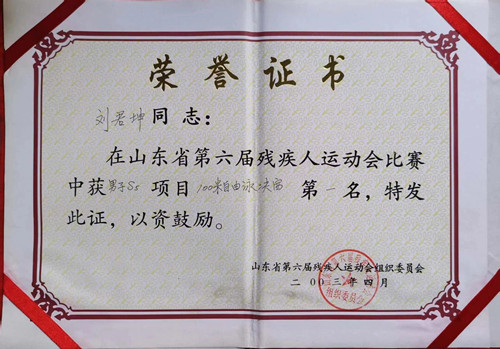 荣誉证书
刘君坤同志：
在山东省第六届残疾人运动会比赛
中获男子S5项目100米自由泳决赛第一名，特发
此证，以资鼓励。
山东省第六届残疾人运动会组织委员会
二00三年四月
组织委员会